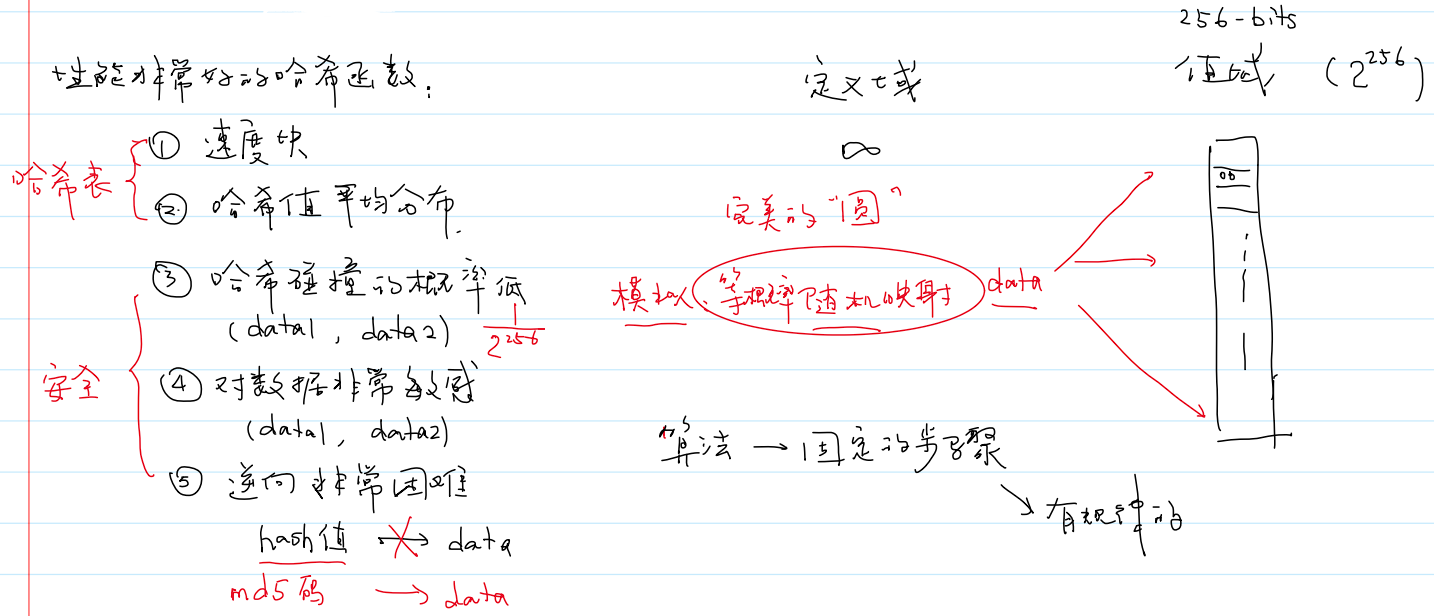 性能非常好的哈希函数:
① 速度快
② 哈希值平均分布.
哈希表
③ 哈希碰撞的概率低
(data1, data2) 1/2^256
④ 对数据非常敏感
(data1, data2)
安全
⑤ 逆向非常困难
hash值 → data
md5码 → data
定义域
∞
完美的“圆”
模拟: 等概率随机的映射 data
算法 → 固定的步骤
有规律的
256-bits
值域 (2^256)